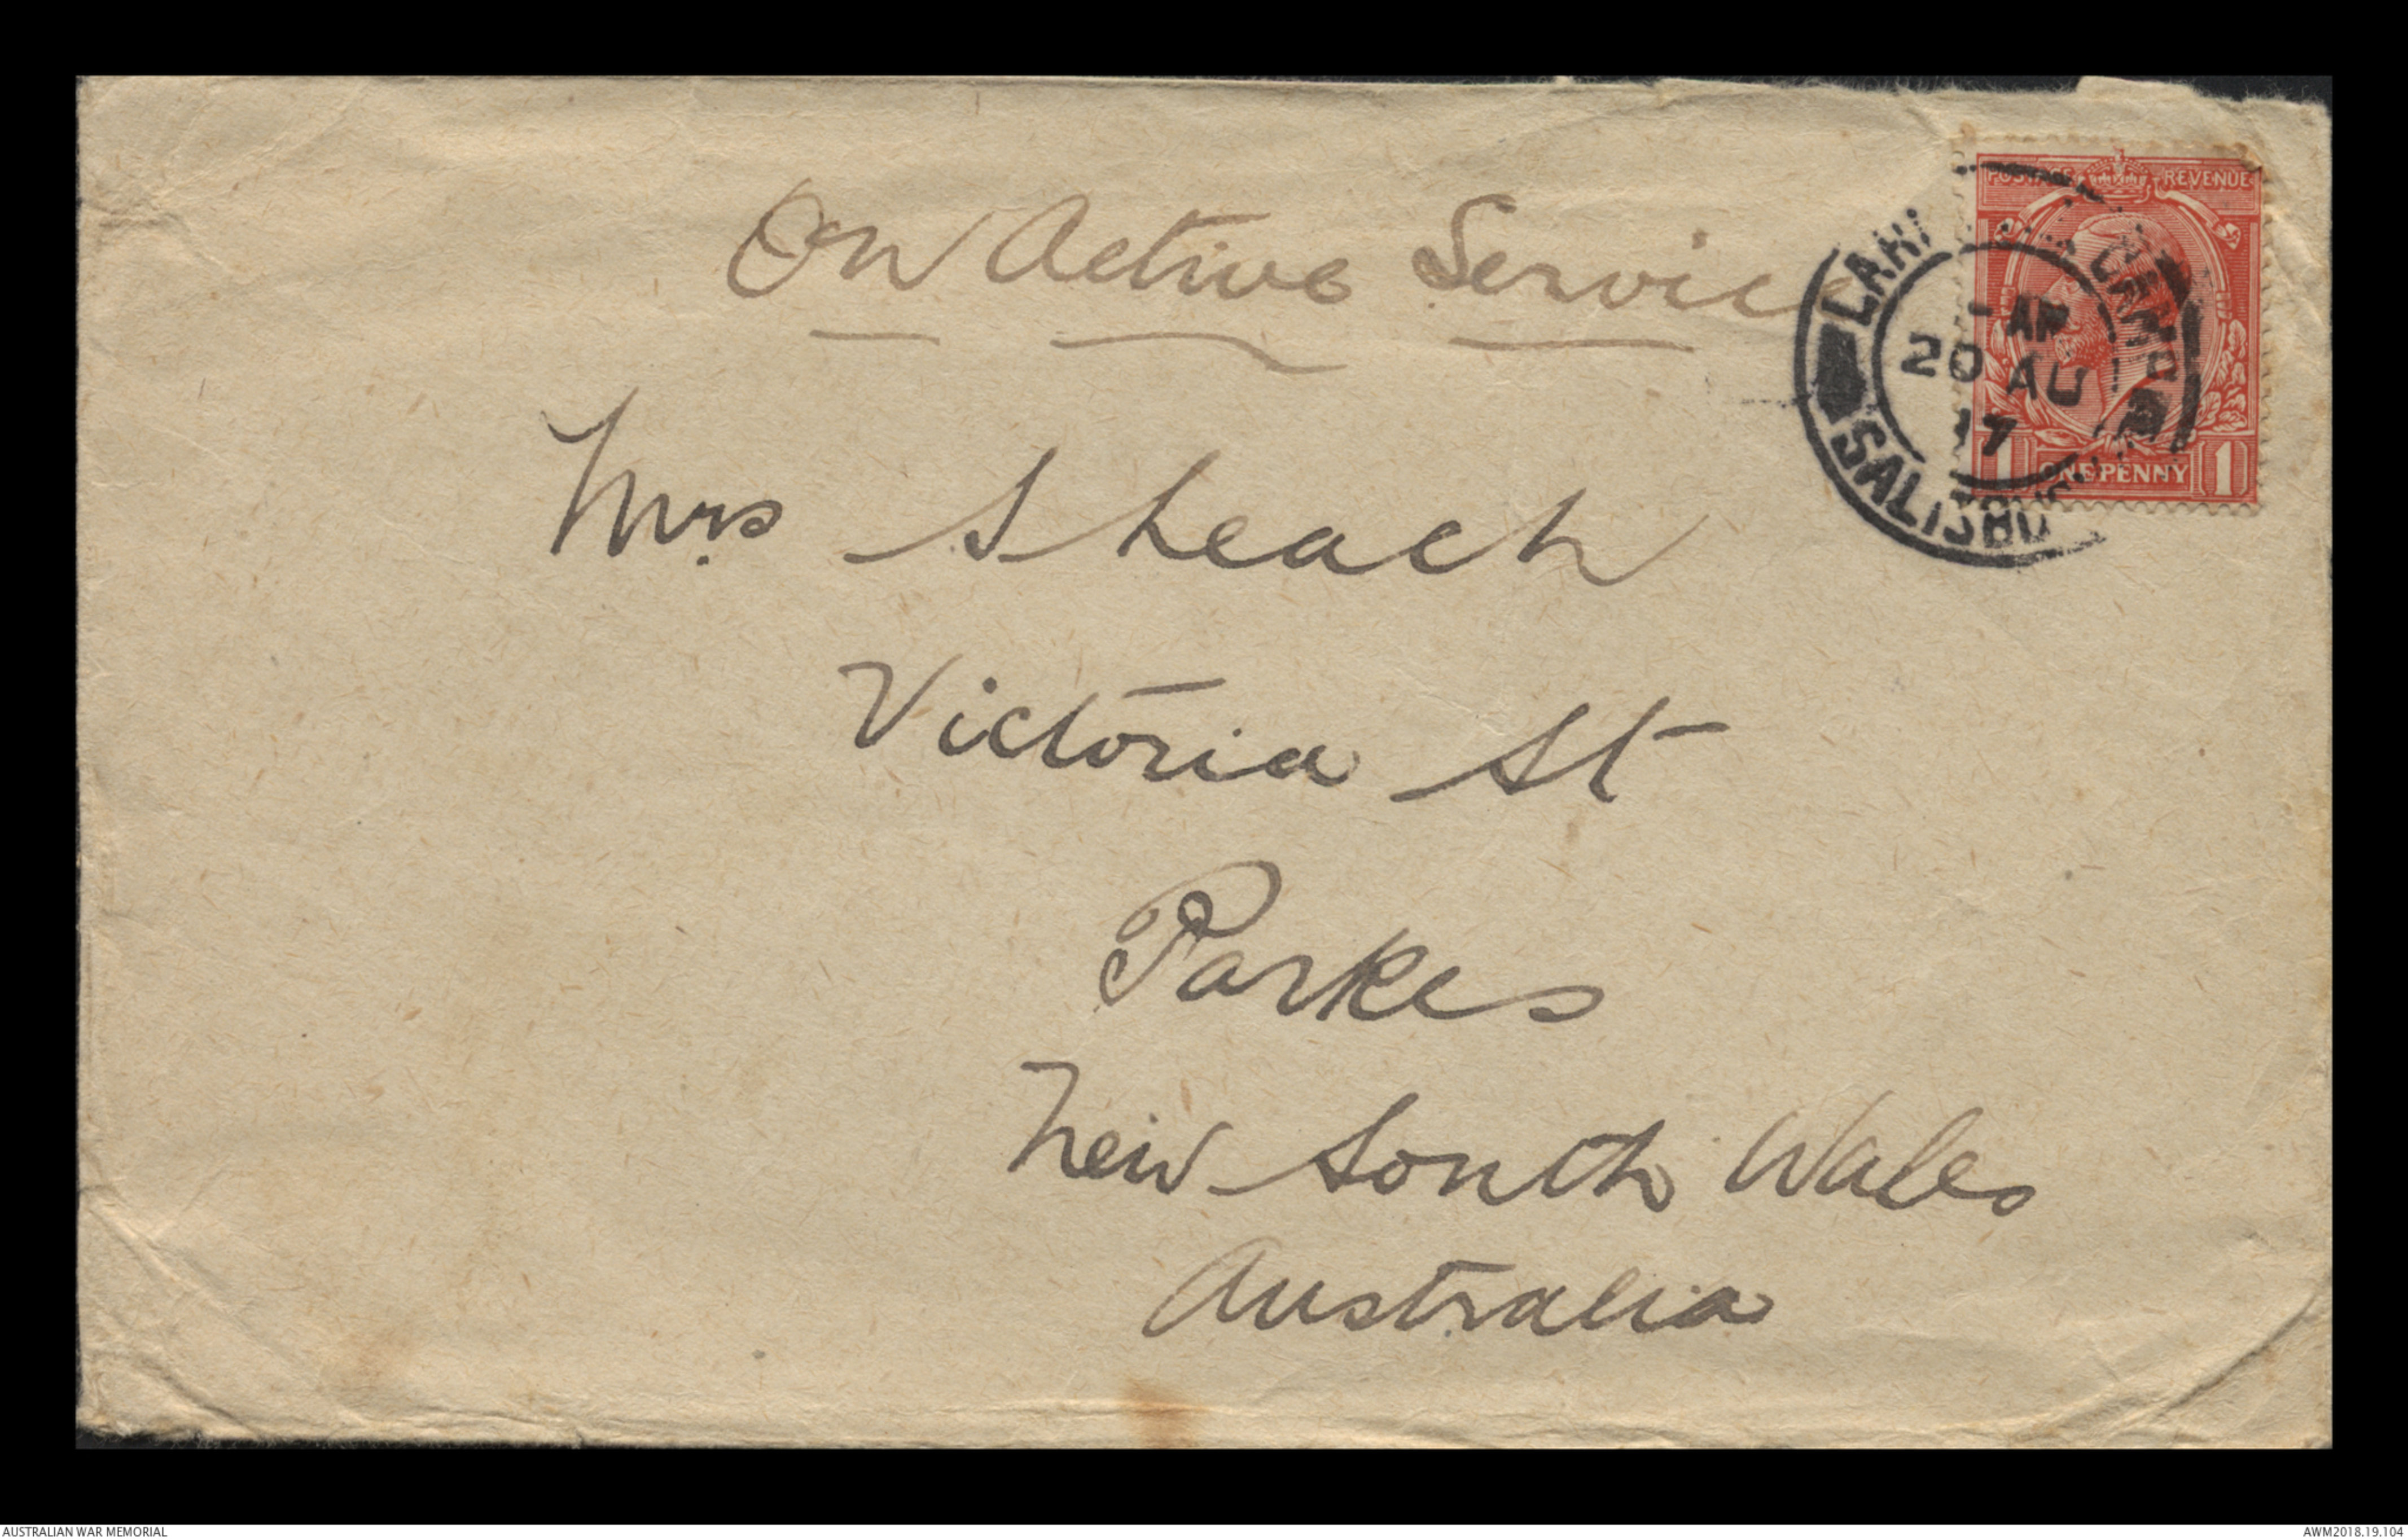 POSTAGE REVENUE
On Active Service
LARK CAMP
AM
20 AU
17
SALISBU
1 ONE PENNY 1
Mrs S Leach
Victoria St
Parkes
New South Wales
Australia
AUSTRALIAN WAR MEMORIAL
AWM2018.19.104